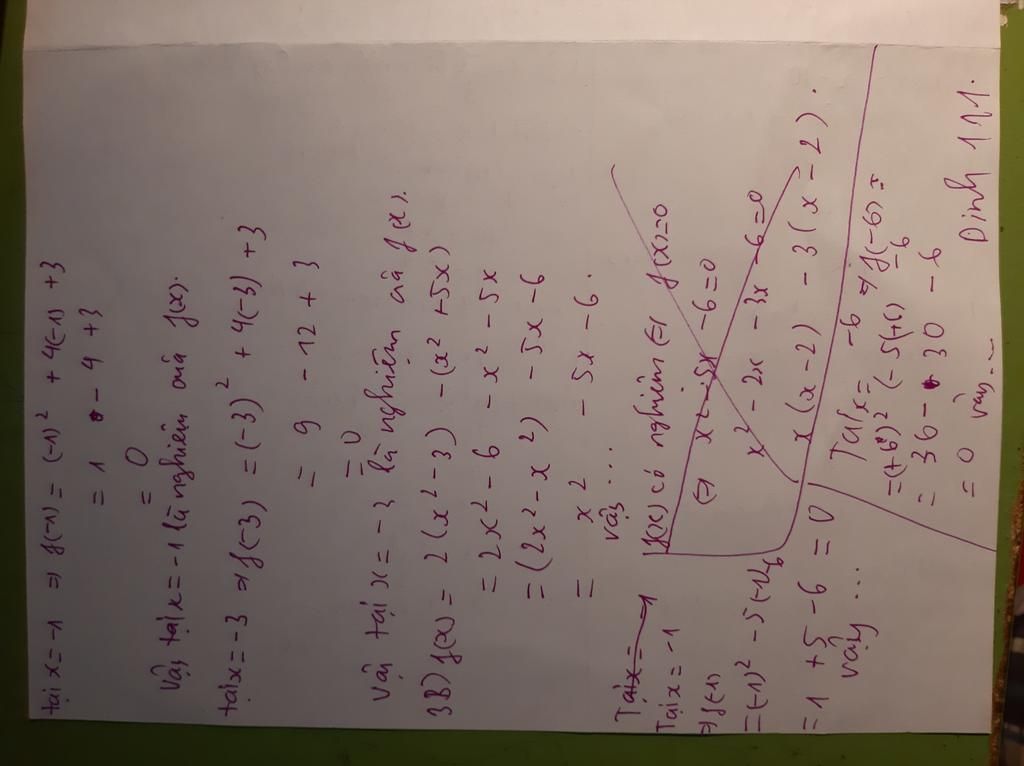 tại x = -1 ⇒ f(-1) = (-1)² + 4(-1) + 3
= 1 - 4 + 3
= 0
Vậy tại x = -1 là nghiệm của f(x).
tại x = -3 ⇒ f(-3) = (-3)² + 4(-3) + 3
= 9 - 12 + 3
= 0
Vậy tại x = -3 là nghiệm của f(x).
3B) f(x) = 2(x² - 3) - (x² + 5x)
= 2x² - 6 - x² - 5x
= (2x² - x²) - 5x - 6
= x² - 5x - 6.
Vậy ...
f(x) có nghiệm ⇔ f(x) = 0
⇔ x² - 5x - 6 = 0
x² - 2x - 3x - 6 = 0
x(x - 2) - 3(x - 2).
Tại x = -1
Tại x = -1
⇒ f(-1)
= (-1)² - 5(-1) - 6
= 1 + 5 - 6 = 0
Vậy ...
Tại x = -6 ⇒ f(-6) =
= (+6)² (-5(+6) - 6
= 36 - 30 - 6
= 0 vậy...
Định 111.